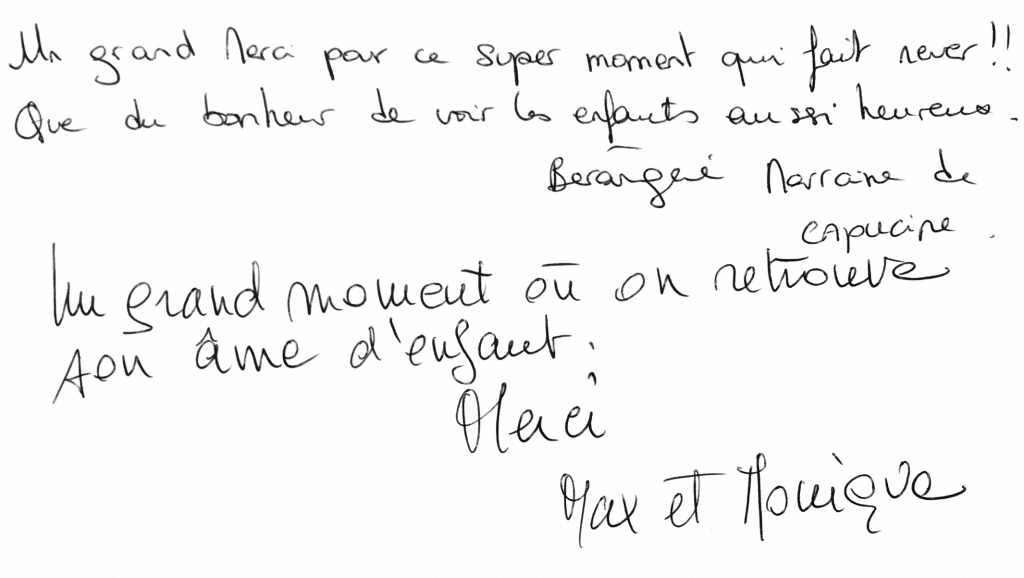 Un grand Merci pour ce super moment qui fait rever!!
Que du bonheur de voir les enfants aussi heureux.
Berangère Marraine de
capucine.
Un grand moment où on retrouve
son âme d'enfant.
Merci
Max et Monique